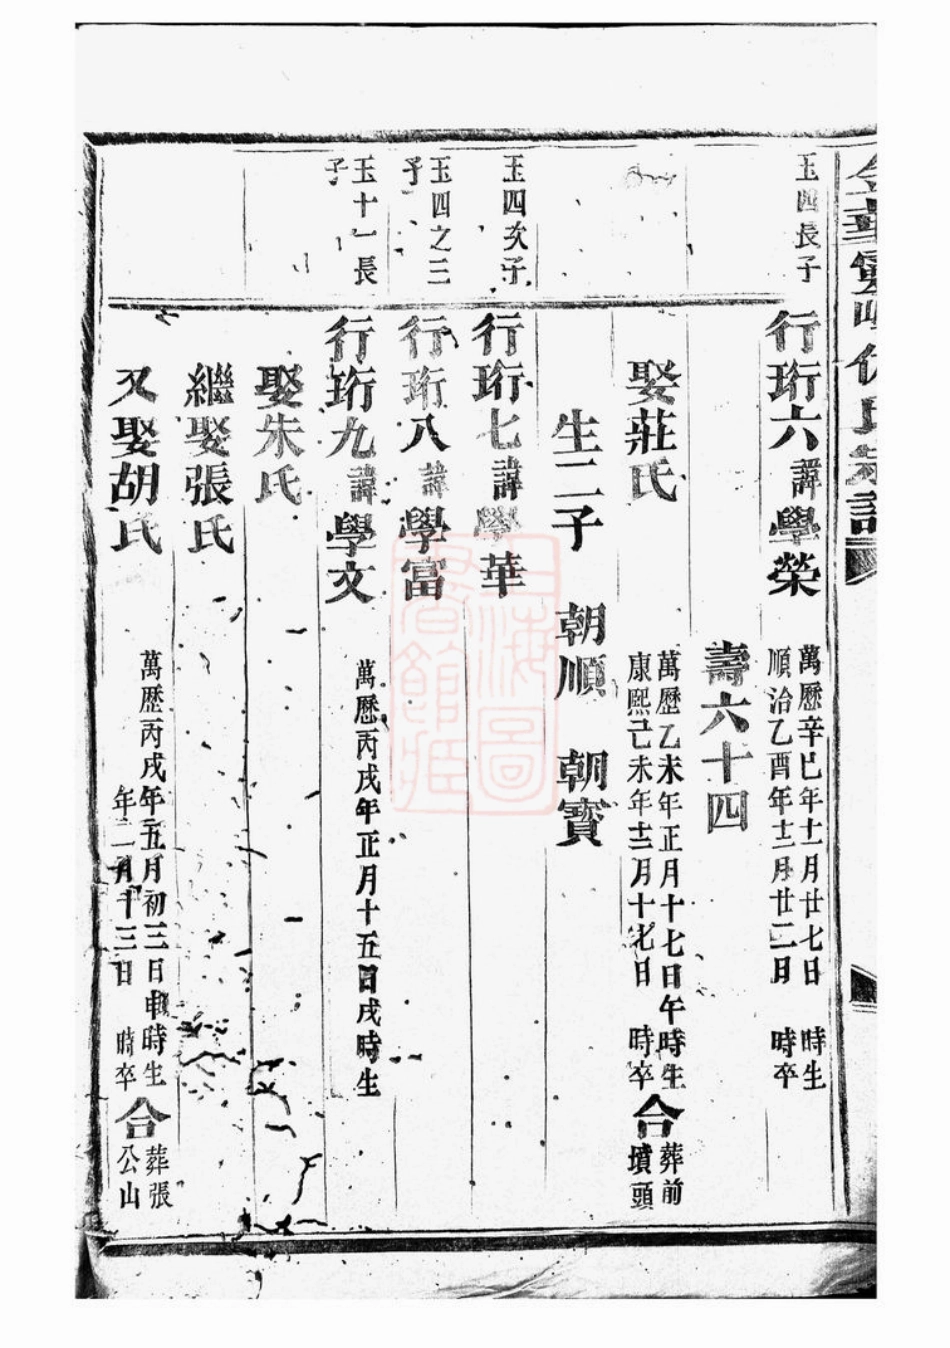 玉四長子
行珩六諱學榮
萬歷辛巳年十一月廿七日 時生
順治乙酉年十二月廿二月 時卒
壽六十四
娶莊氏
萬歷乙未年正月十七日午時生
康熙己未年十二月十七日 時卒
合葬前墳頭
生二子 朝順 朝寶
玉四次子
行珩七諱學華
玉四之三子
行珩八諱學富
玉十一長子
行珩九諱學文
萬歷丙戌年正月十五日戌時生
娶朱氏
繼娶張氏
又娶胡氏
萬歷丙戌年五月初三日申時生
年二月十三日 時卒
合葬張公山
上海圖書館藏